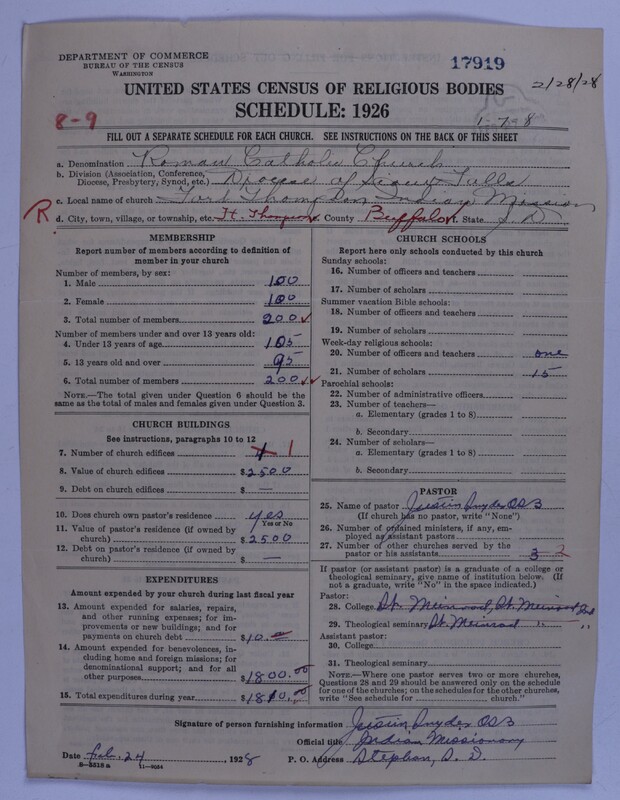 DEPARTMENT OF COMMERCE
BUREAU OF THE CENSUS
WASHINGTON
17919
2/28/28
UNITED STATES CENSUS OF RELIGIOUS BODIES
SCHEDULE: 1926
8-9
1-7-8
FILL OUT A SEPARATE SCHEDULE FOR EACH CHURCH. SEE INSTRUCTIONS ON THE BACK OF THIS SHEET
a. Denomination Roman Catholic Church
b. Division (Association, Conference, Diocese, Presbytery, Synod, etc.) Diocese of Sioux Falls
c. Local name of church Fort Thompson Indian Mission
R d. City, town, village, or township, etc. Ft. Thompson County Buffalo State S D
MEMBERSHIP
Report number of members according to definition of
member in your church
Number of members, by sex:
1. Male 100
2. Female 100
3. Total number of members 200 ✓
Number of members under and over 13 years old:
4. Under 13 years of age 105
5. 13 years old and over 95
6. Total number of members 200 ✓✓
NOTE.—The total given under Question 6 should be
the same as the total of males and females given under Question 3.
CHURCH BUILDINGS
See instructions, paragraphs 10 to 12
7. Number of church edifices 1
8. Value of church edifices $2500
9. Debt on church edifices $ —
10. Does church own pastor's residence? yes
Yes or No
11. Value of pastor's residence (if owned by
church) $2500
12. Debt on pastor's residence (if owned by
church) $ —
EXPENDITURES
Amount expended by your church during last fiscal year
13. Amount expended for salaries, repairs,
and other running expenses; for im-
provements or new buildings; and for
payments on church debt $10.—
14. Amount expended for benevolences, in-
cluding home and foreign missions; for
denominational support; and for all
other purposes $1800.00
15. Total expenditures during year $1810.00
CHURCH SCHOOLS
Report here only schools conducted by this church
Sunday schools:
16. Number of officers and teachers
17. Number of scholars
Summer vacation Bible schools:
18. Number of officers and teachers
19. Number of scholars
Week-day religious schools:
20. Number of officers and teachers one
21. Number of scholars 15
Parochial schools:
22. Number of administrative officers
23. Number of teachers—
a. Elementary (grades 1 to 8)
b. Secondary
24. Number of scholars—
a. Elementary (grades 1 to 8)
b. Secondary
PASTOR
25. Name of pastor Justin Snyder OSB
(If church has no pastor, write "None")
26. Number of ordained ministers, if any, em-
ployed as assistant pastors
27. Number of other churches served by the
pastor or his assistants 3 2
If pastor (or assistant pastor) is a graduate of a college or
theological seminary, give name of institution below. (If
not a graduate, write "No" in the space indicated.)
Pastor:
28. College St. Meinrad, St. Meinrad Ind
29. Theological seminary St. Meinrad " "
Assistant pastor:
30. College
31. Theological seminary
NOTE.—Where one pastor serves two or more churches,
Questions 28 and 29 should be answered only on the schedule
for one of the churches; on the schedules for the other churches,
write "See schedule for ........ church."
Signature of person furnishing information Justin Snyder OSB
Official title Indian Missionary
Date Feb. 24, 1928 P. O. Address Stephan, S. D.
8-2518 a 11-9034